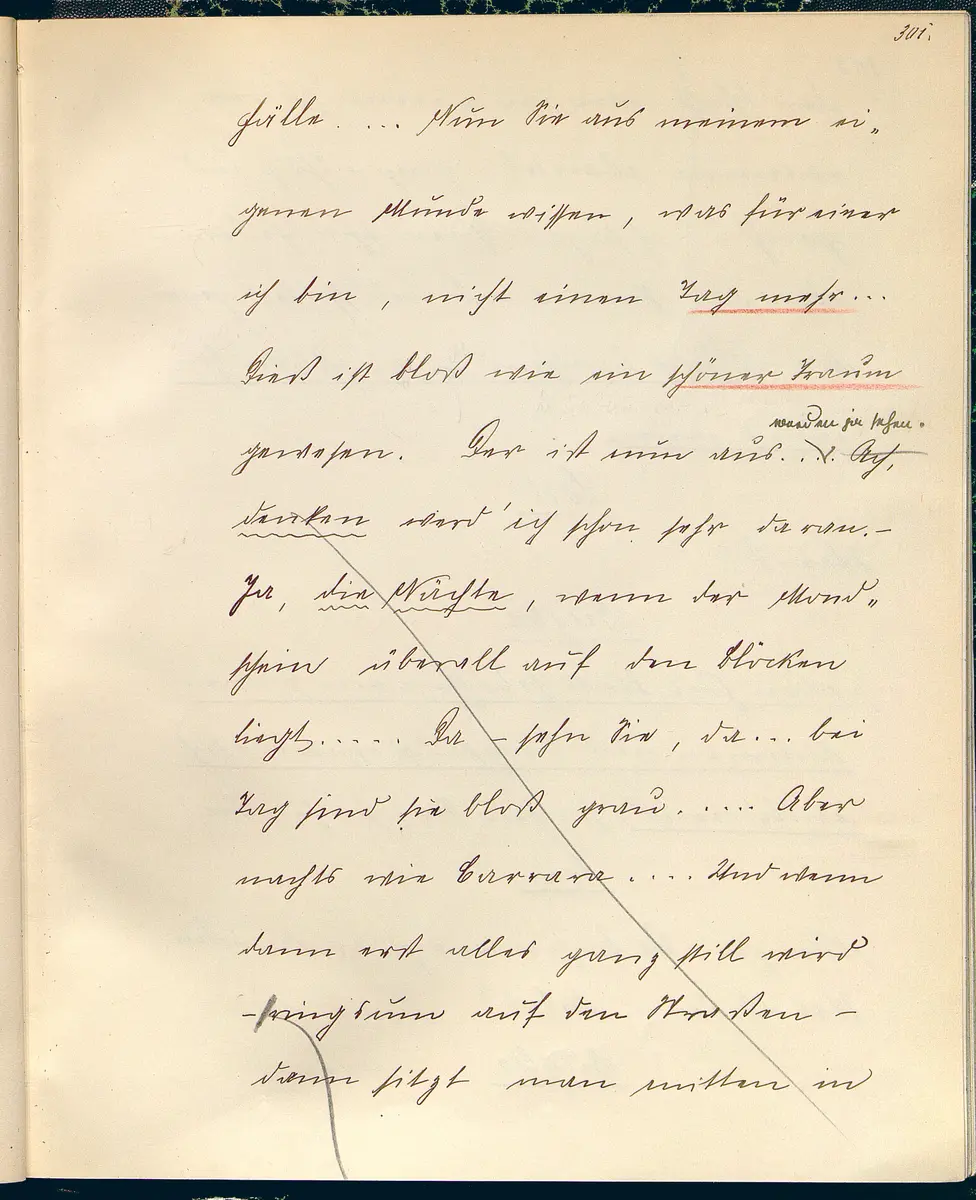 301.
fälle. ... Nun Sie aus meinem ei-
genen Munde wissen, was für einer
ich bin, nicht einen Tag mehr...
Dieß ist bloß wie ein schöner Traum
werden ja sehen.
gewesen. Der ist nun aus. ... Ach,
denken werd' ich schon sehr daran.–
Ja, die Nächte, wenn der Mond-
schein überall auf den Blöcken
liegt..... Da – sehn Sie, da... bei
Tag sind sie bloß grau. .... Aber
nachts wie Carrara .... Und wenn
dann erst alles ganz still wird
– ringsum auf den Straßen –
dann sitzt man mitten in